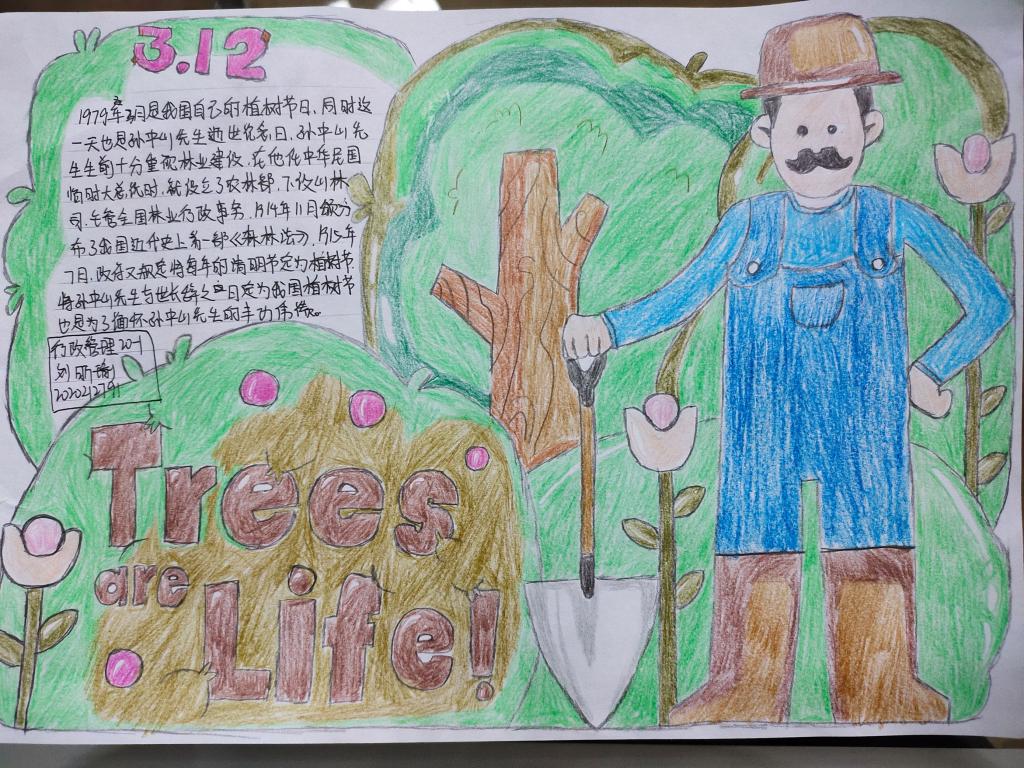 3.12
1979年3月是我国自己的植树节日,同时这
一天也是孙中山先生逝世纪念日,孙中山先
生生前十分重视林业建设,在他任中华民国
临时大总统时,就设立了农林部,下设山林
司,主管全国林业行政事务,1914年11月颁分
布了我国近代史上第一部《森林法》,1915年
7月,政府又规定将每年的清明节定为植树节
将孙中山先生与世长辞之日定为我国植树节
也是为了缅怀孙中山先生的丰功伟绩。
行政管理20-1
刘
Trees
are
Life!